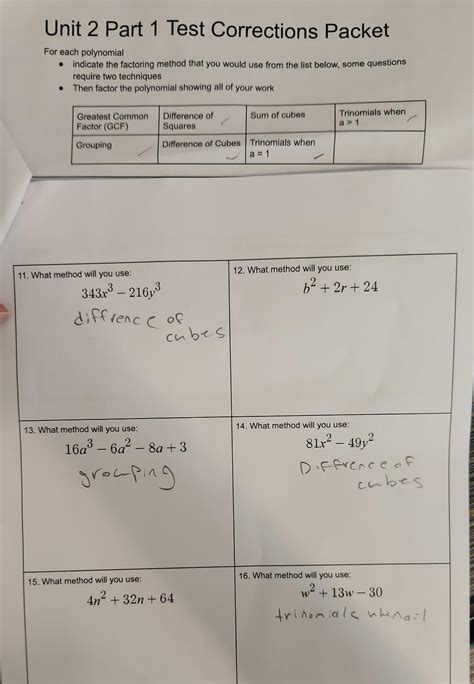 Unit 2 Part 1 Test Corrections Packet
For each polynomial
• indicate the factoring method that you would use from the list below, some questions
require two techniques
• Then factor the polynomial showing all of your work
Greatest Common
Factor (GCF)
Difference of
Squares
Sum of cubes
Trinomials when
a > 1
Grouping
Difference of Cubes
Trinomials when
a = 1
11. What method will you use:
343x³ – 216y³
diffrence of
cubes
12. What method will you use:
b² + 2r + 24
13. What method will you use:
16a³ – 6a² – 8a + 3
grouping
14. What method will you use:
81x² – 49y²
Diffrence of
cubes
15. What method will you use:
4n² + 32n + 64
16. What method will you use:
w² + 13w – 30
trinomials when a=1